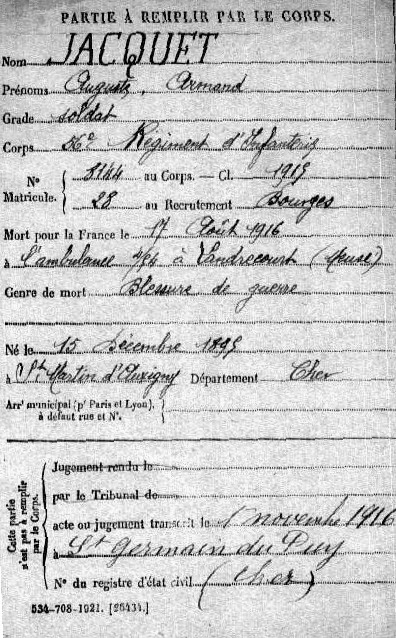 PARTIE À REMPLIR PAR LE CORPS.
Nom JACQUET
Prénoms Auguste, Armand
Grade soldat
Corps Régiment d'Infanterie
No Matricule. 8144 au Corps. — Cl. 1915
28 au Recrutement Bourges
Mort pour la France le 17 Août 1916
à l'ambulance à Landrecourt (Meuse)
Genre de mort Blessure de guerre
Né le 15 Décembre 1895
à St Martin d'Auxigny Département Cher
Arrt municipal (pr Paris et Lyon),
à défaut rue et No.
Cette partie n'est pas à remplir par le Corps.
Jugement rendu le
par le Tribunal de
acte ou jugement transcrit le 1 novembre 1916
à St Germain du Puy
No du registre d'état civil (Cher)
534-708-1921. [26434.]